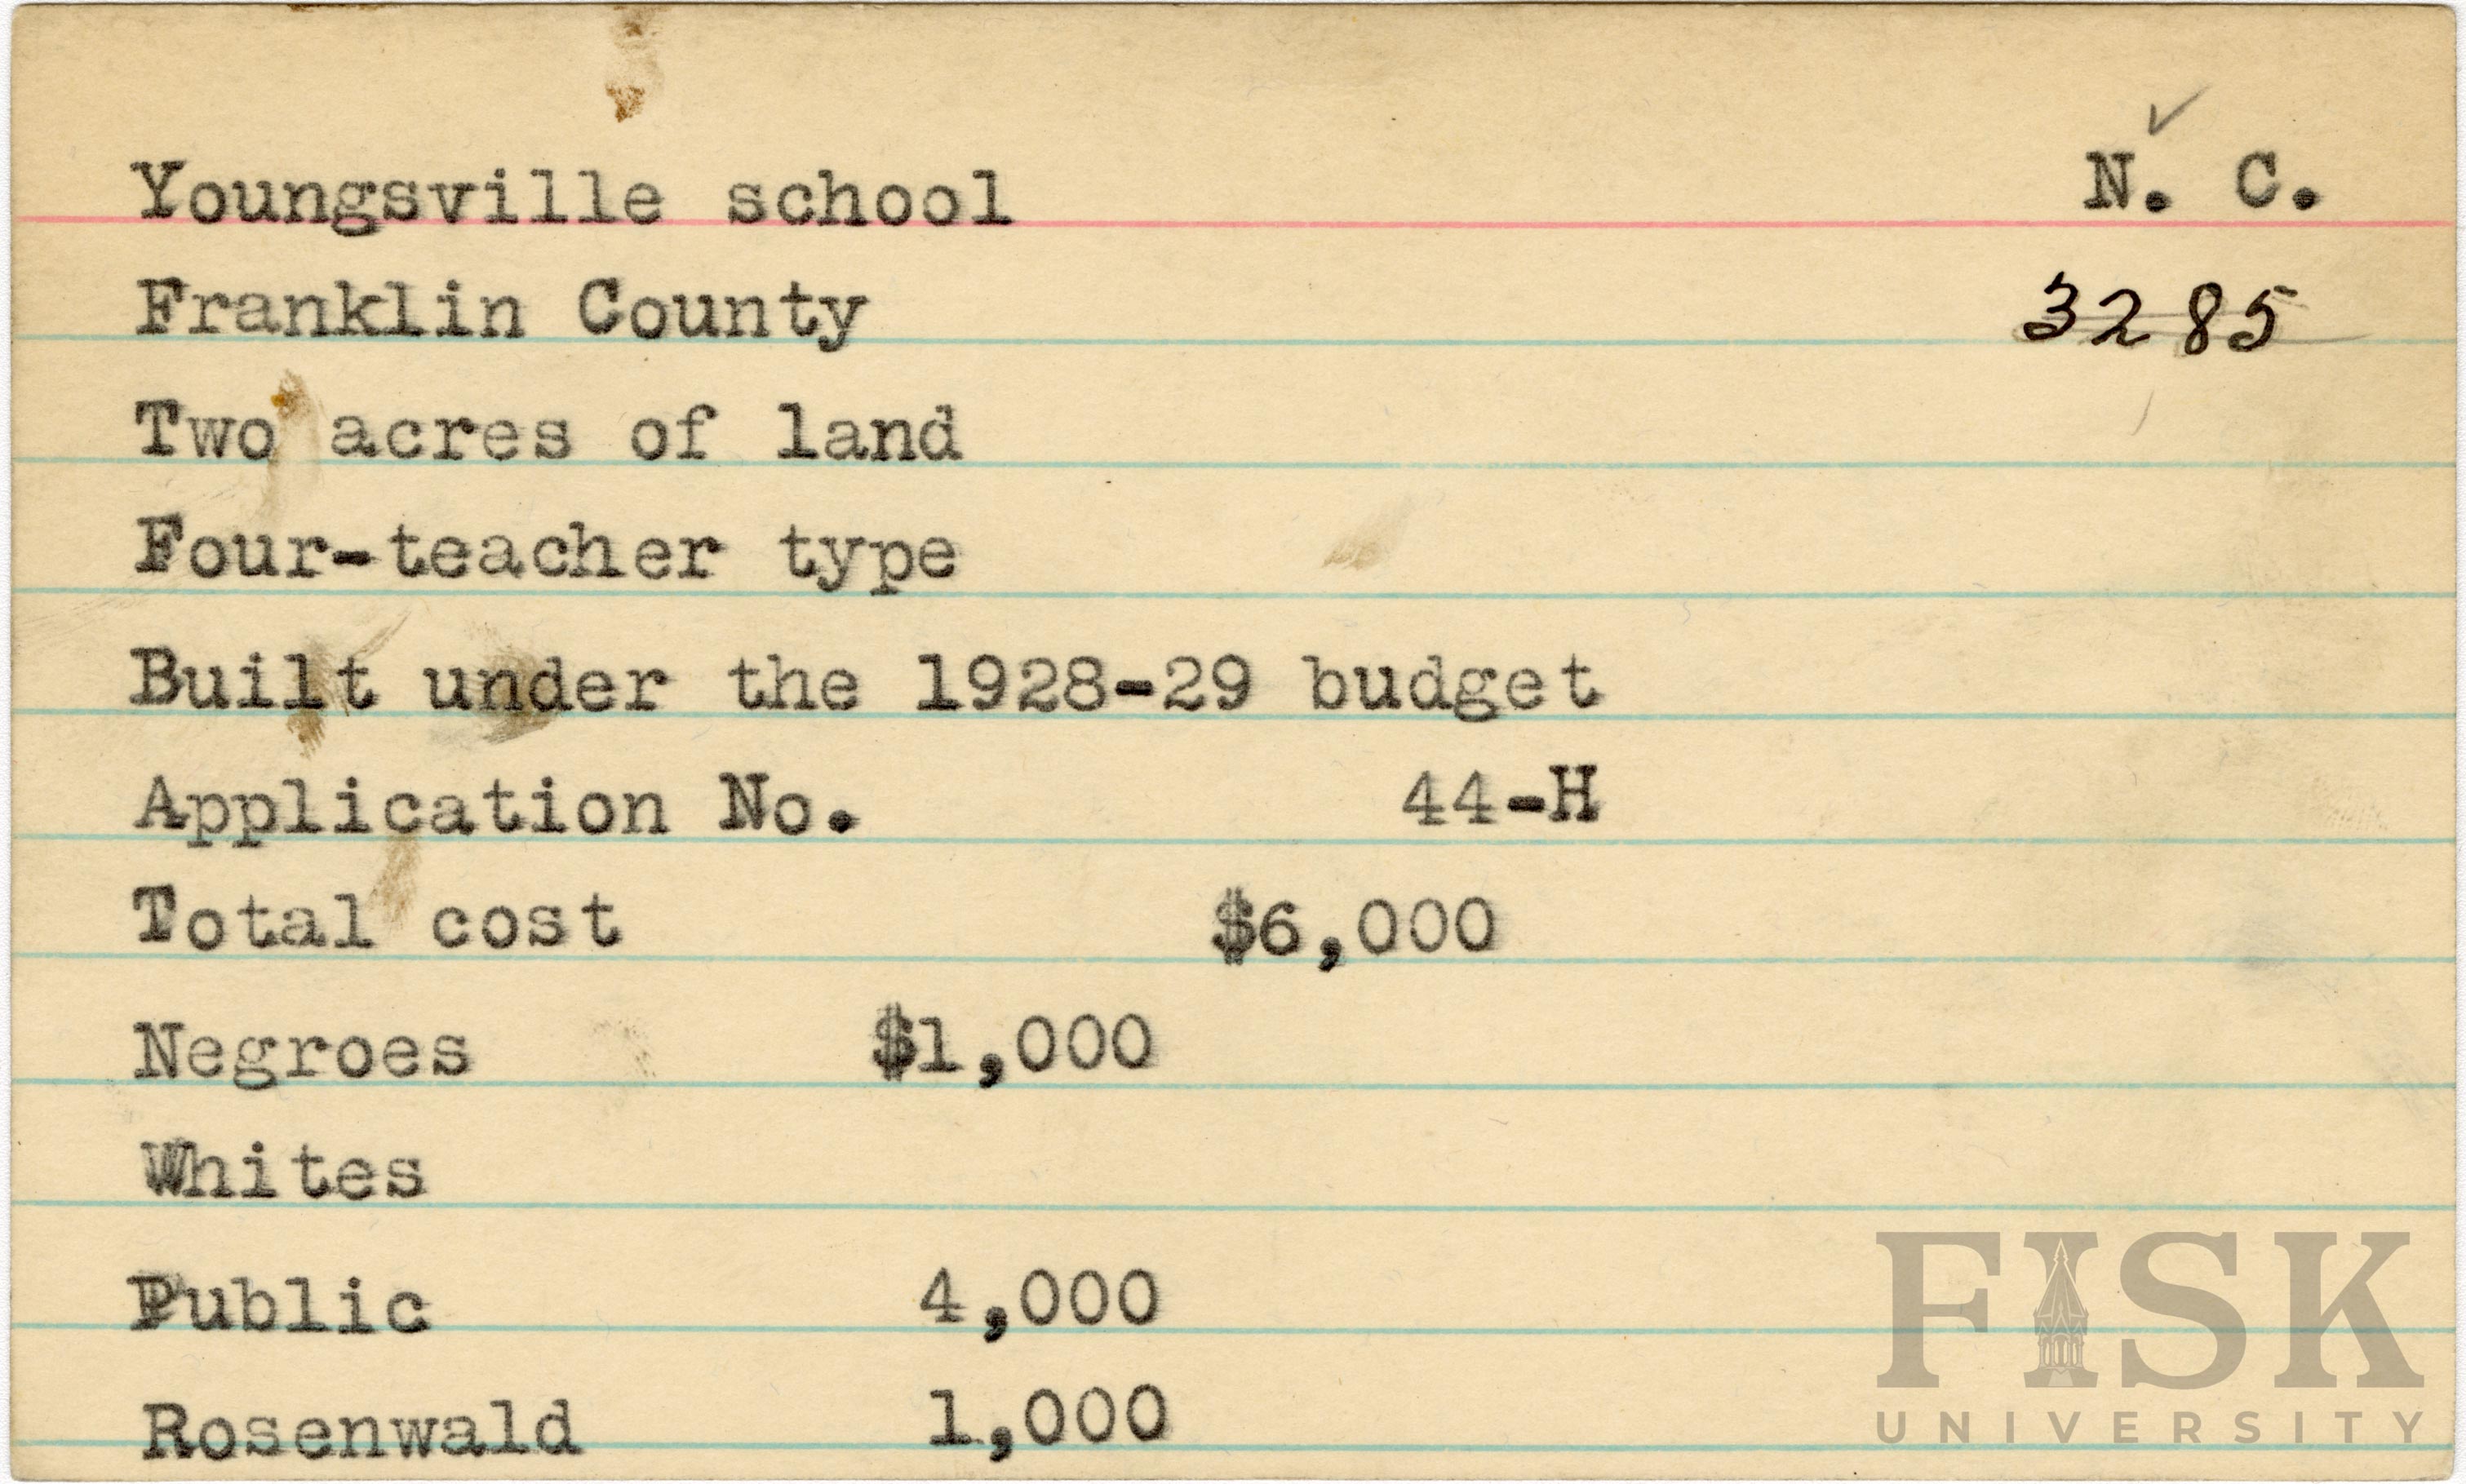 Youngsville school N. C.
Franklin County 3285
Two acres of land
Four-teacher type
Built under the 1928-29 budget
Application No. 44-H
Total cost $6,000
Negroes $1,000
Whites
Public 4,000
Rosenwald 1,000
FISK
UNIVERSITY